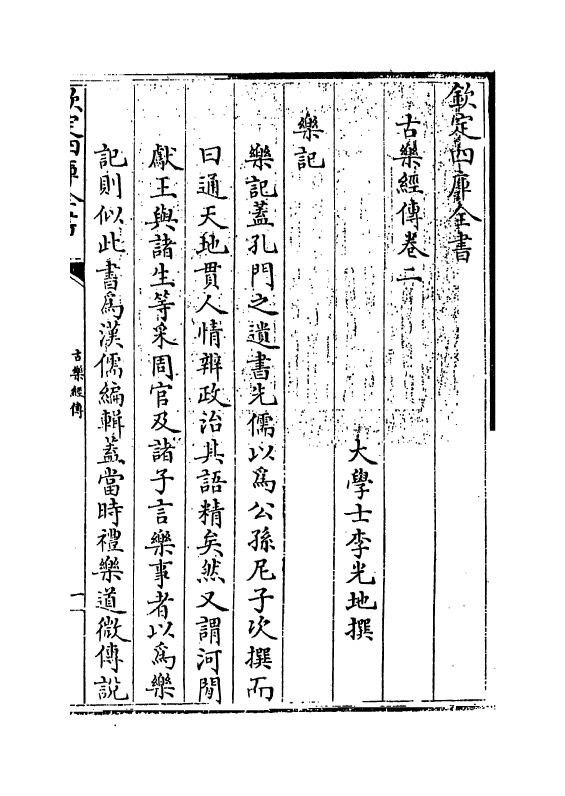 欽定四庫全書
古樂經傳卷二
大學士李光地撰
樂記
樂記蓋孔門之遺書先儒以爲公孫尼子次撰而
曰通天地貫人情辨政治其語精矣然又謂河閒
獻王與諸生等采周官及諸子言樂事者以爲樂
記則似此書爲漢儒編輯蓋當時禮樂道微傳説
欽定四庫全書
古樂經傳
一